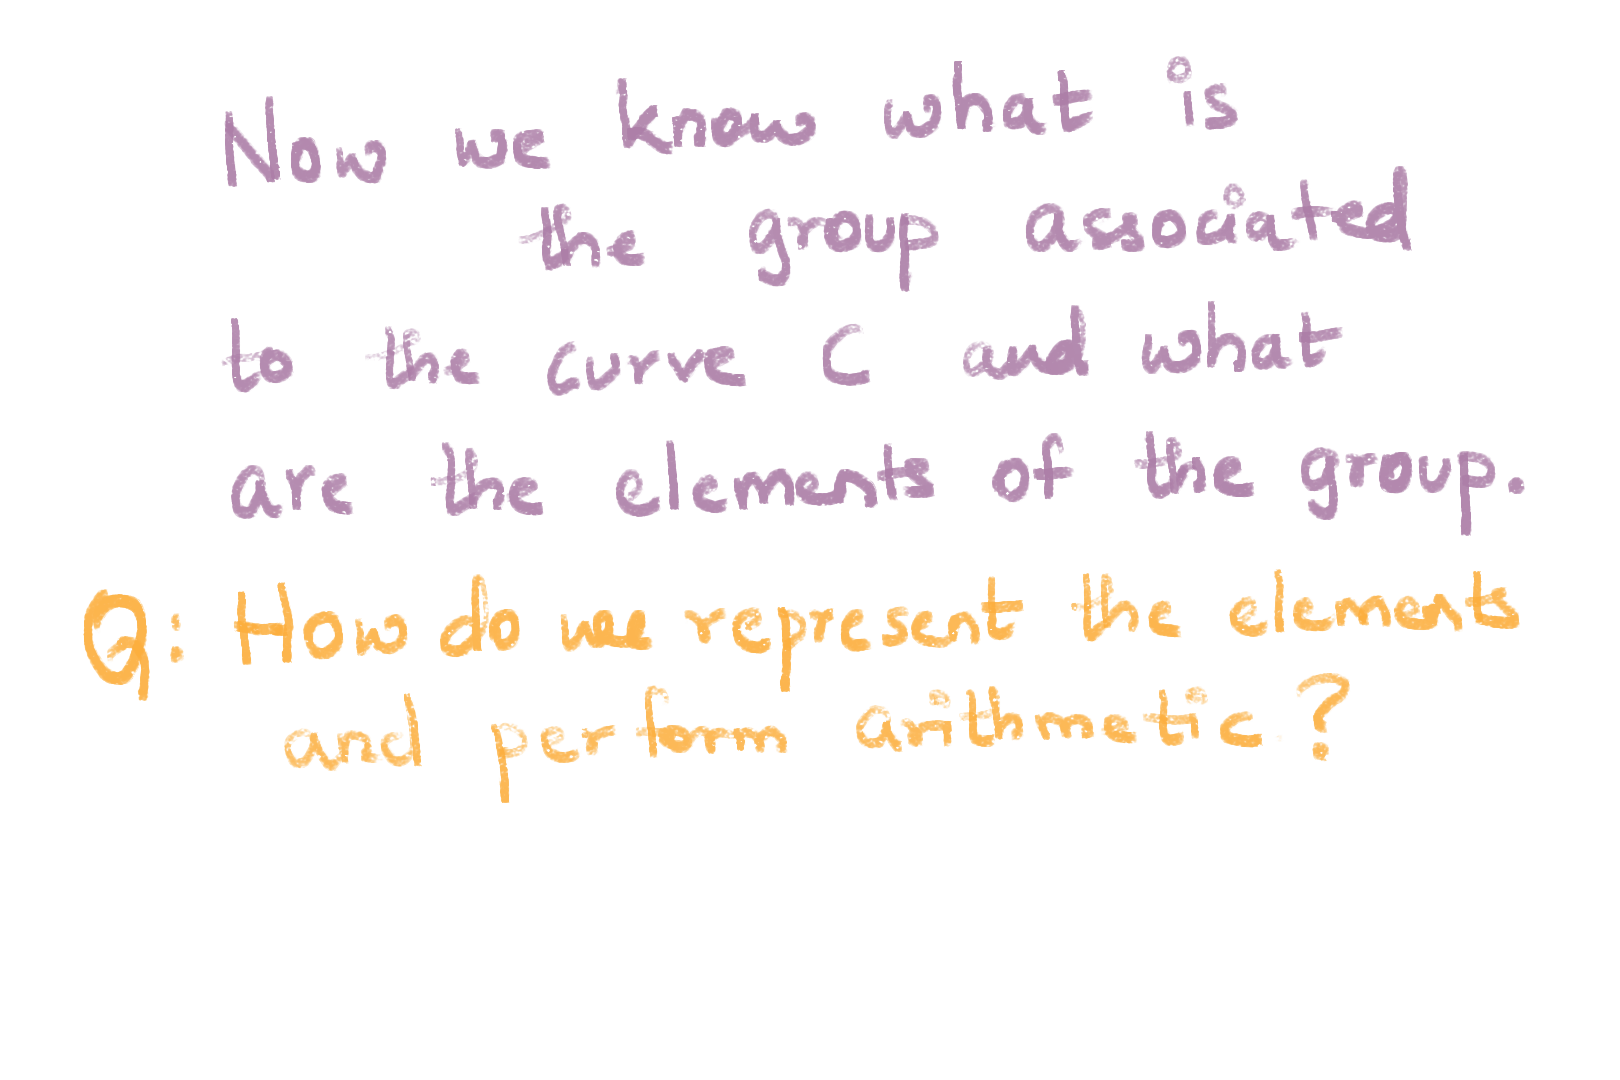 Now we know what is
the group associated
to the curve C and what
are the elements of the group.
Q: How do we represent the elements
and perform arithmetic?